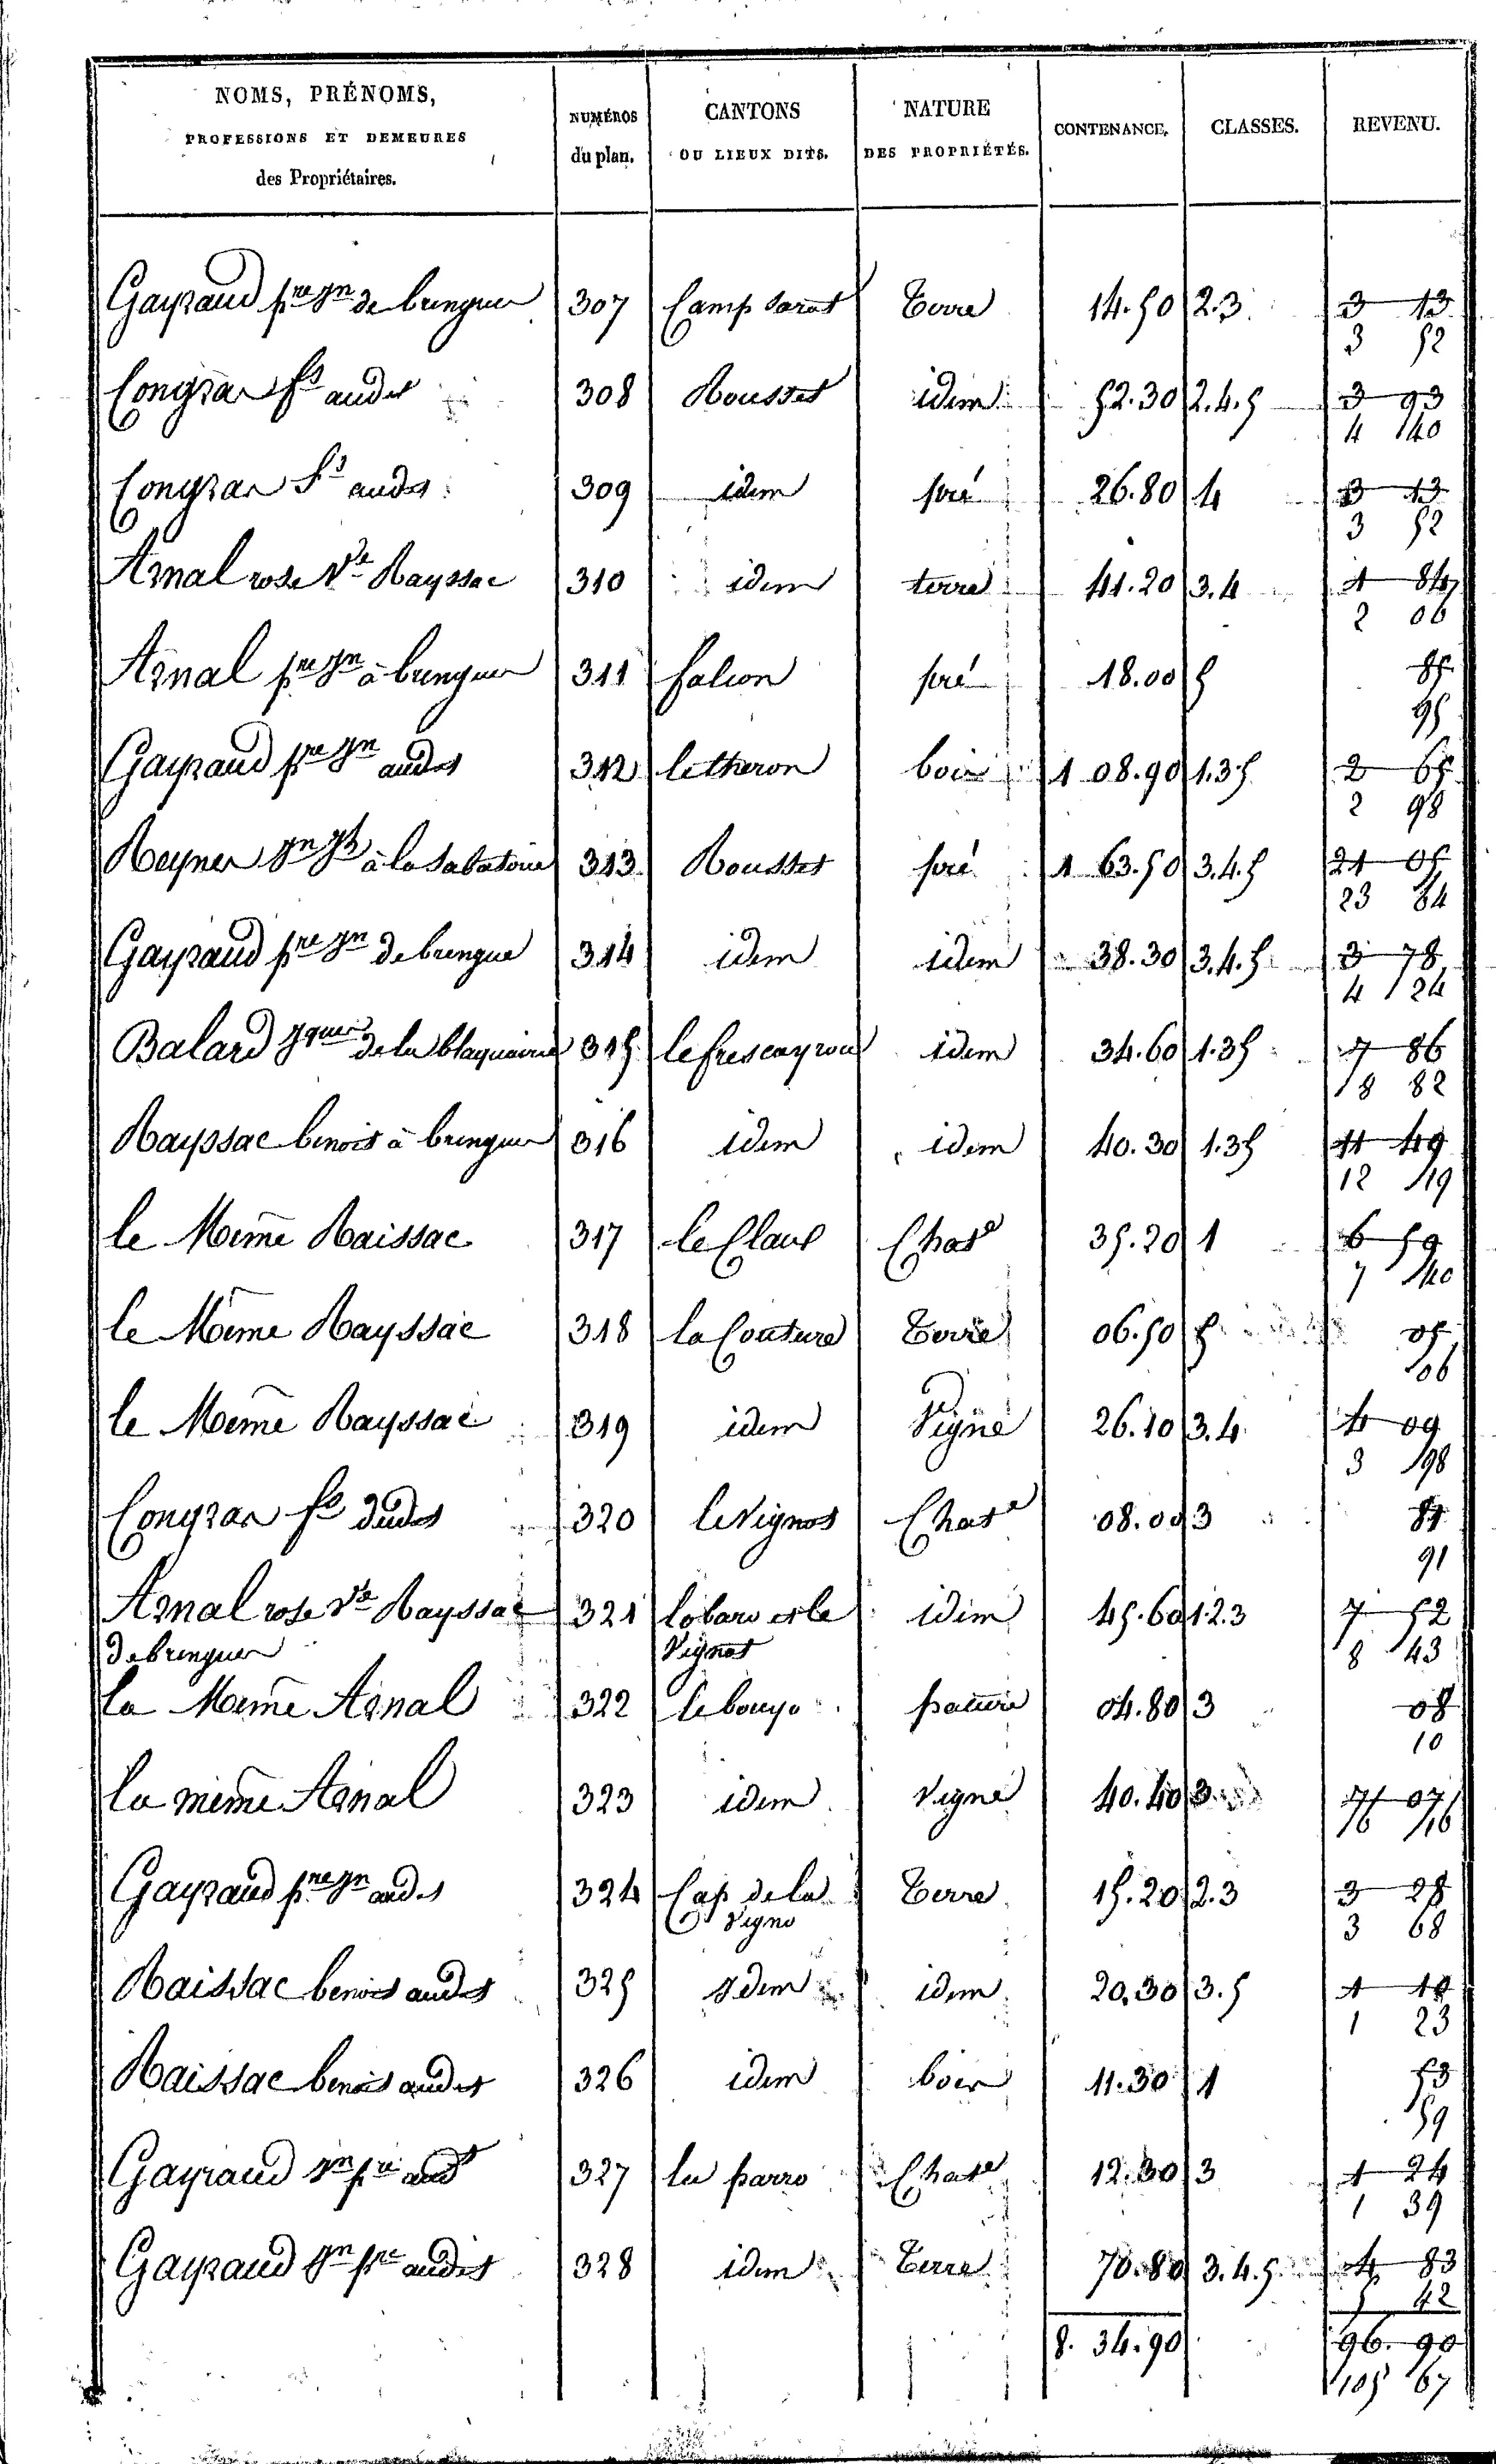 NOMS, PRÉNOMS,
PROFESSIONS ET DEMEURES
des Propriétaires.
NUMÉROS
du plan.
CANTONS
OU LIEUX DITS.
NATURE
DES PROPRIÉTÉS.
CONTENANCE.
CLASSES.
REVENU.
Gayraud pre jn de bringuer 307 Camp sarat Terre 14.50 2.3 3 13
3 52
Congrar fs audet 308 Rousset idem 52.30 2.4.5 3 93
4 40
Congrar fs audet 309 idem pré 26.80 4 3 13
3 52
Arnal rose Ve Rayssac 310 idem terre 41.20 3.4 1 84
2 06
Arnal pre jn à bringuer 311 falion pré 18.00 5 85
95
Gayraud pre jn audet 312 le theron bois 1 08.90 1.3.5 2 65
2 98
Reyner jn à la sabaterie 313 Rousset pré 1 63.50 3.4.5 21 05
23 64
Gayraud pre jn de bringue 314 idem idem 38.30 3.4.5 3 78
4 24
Balard jques de la blaquairie 315 le frescayrou idem 34.60 1.3.5 7 86
8 82
Rayssac benoit à bringuer 316 idem idem 40.30 1.3.5 11 49
12 19
le Même Raissac 317 le Claus Chate 35.20 1 6 59
7 40
le Même Rayssac 318 la Couture Terre 06.50 5 05
06
le Même Rayssac 319 idem Vigne 26.10 3.4 4 09
3 98
Congrar fs dudet 320 le Vignot Chate 08.00 3 81
91
Arnal rose Ve Rayssac 321 lo bare et le idem 45.60 1.2.3 7 52
de bringuer Vignot 8 43
La Même Arnal 322 le bouyo pature 04.80 3 08
10
la même Arnal 323 idem Vigne 40.40 3 7 07
6 16
Gayraud pre jn audet 324 Cap de la Terre 15.20 2.3 3 28
Vigno 3 68
Raissac benoit audet 325 idem idem 20.30 3.5 1 10
1 23
Raissac benoit audet 326 idem bois 11.30 1 53
59
Gayraud jn pre audt 327 la parro Chate 12.30 3 1 24
1 39
Gayraud jn pre audet 328 idem Terre 70.80 3.4.5 4 83
5 42
8. 34.90 96. 90
105 67